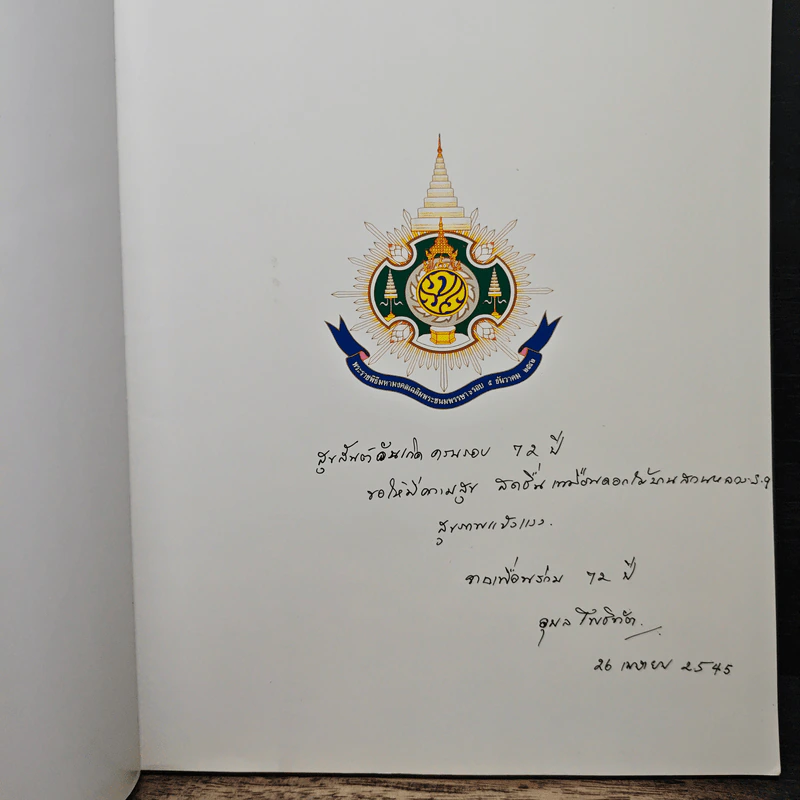 พระราชพิธีมหามงคลเฉลิมพระชนมพรรษา ๖ รอบ ๕ ธันวาคม ๒๕๔๒
สุขสันต์วันเกิด ครบรอบ 72 ปี
ขอให้มีความสุข สดชื่น เหมือนดอกไม้บานสวนหลวง ร.9
สุขภาพแข็งแรง
จากเพื่อนร่วม 72 ปี
26 เมษายน 2545